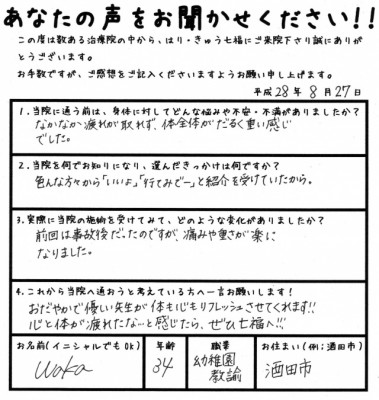 あなたの声をお聞かせください!!
この度は数ある治療院の中から、はり・きゅう七福にご来院下さり誠にありがとうございます。
お手数ですが、ご感想をご記入くださいますようお願い申し上げます。
平成28年8月27日
1.当院に通う前は、身体に対してどんな悩みや不安・不満がありましたか?
なかなか疲れが取れず、体全体がだるく重い感じ
でした。
2.当院を何でお知りになり、選んだきっかけは何ですか?
色んな方々から「いいよ」「行てみでー」と紹介を受けていたから。
3.実際に当院の施術を受けてみて、どのような変化がありましたか?
前回は事故後だったのですが、痛みや重さが楽に
なりました。
4.これから当院へ通おうと考えている方へ一言お願いします!
おだやかで優しい先生が体も心もリフレッシュさせてくれます!!
心と体が疲れたな…と感じたら、ぜひ七福へ!!
お名前(イニシャルでもOK) 年齢 職業 お住まい(例:酒田市)
waka 34 幼稚園 酒田市
教諭